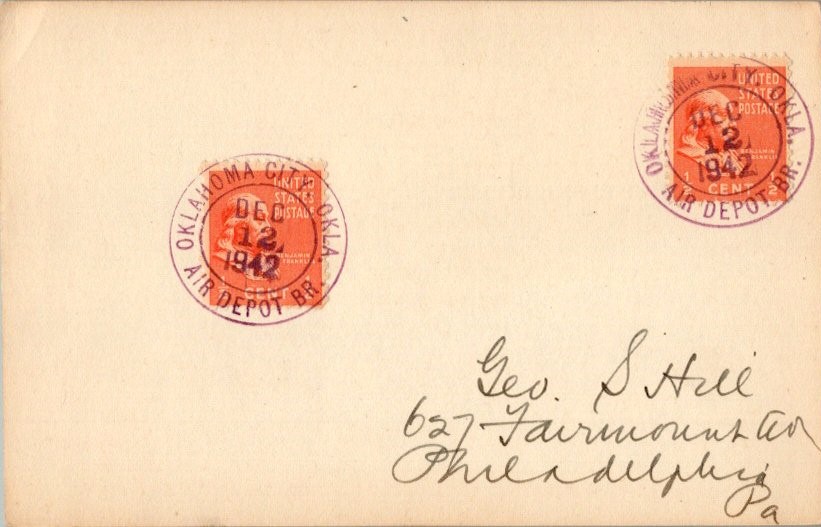 OKLAHOMA CITY, OKLA.
DEC
12
1942
AIR DEPOT BR.
UNITED
STATES
POSTAGE
BENJAMIN
FRANKLIN
CENT
OKLAHOMA CITY, OKLA.
DEC
12
1942
AIR DEPOT BR.
UNITED
STATES
POSTAGE
BENJAMIN
FRANKLIN
1 CENT 2
Geo. S Hill
627 Fairmount Av
Philadelphia
Pa